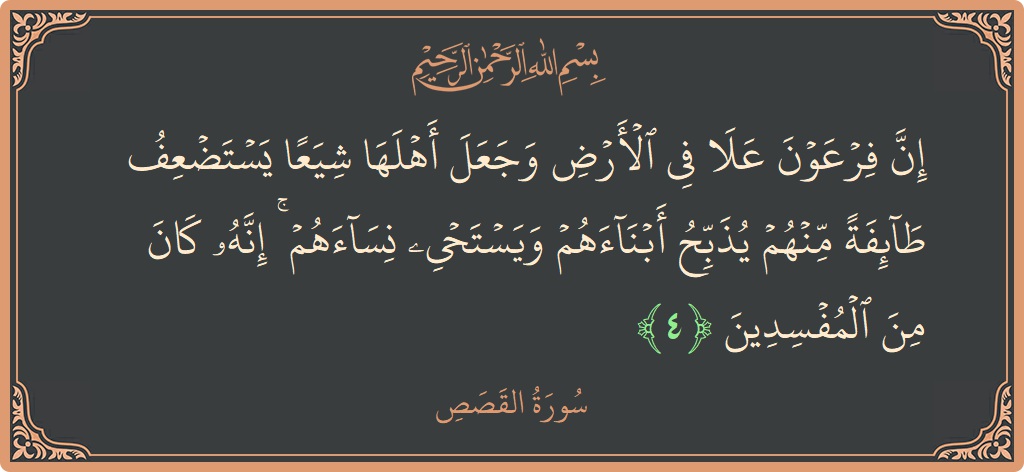 بِسْمِ اللَّهِ الرَّحْمَٰنِ الرَّحِيمِ
إِنَّ فِرۡعَوۡنَ عَلَا فِي ٱلۡأَرۡضِ وَجَعَلَ أَهۡلَهَا شِيَعٗا يَسۡتَضۡعِفُ
طَآئِفَةٗ مِّنۡهُمۡ يُذَبِّحُ أَبۡنَآءَهُمۡ وَيَسۡتَحۡيِۦ نِسَآءَهُمۡۚ إِنَّهُۥ كَانَ
مِنَ ٱلۡمُفۡسِدِينَ ﴿٤﴾
سُورَةُ القَصَصِ